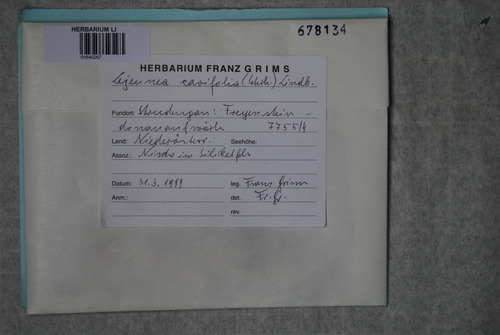 HERBARIUM LI
678134
HERBARIUM FRANZ GRIMS
Lejeunea cavifolia (Ehrh.) Lindb.
Fundort: Strudengau: Freyenstein -
donauaufwärts 7755/4
Land: Niederöster. Seehöhe:
Assoz.: Nische im Silikatfels
Datum: 31.3.1999 leg. Franz Grims
Anm.: det. Fr. Gr.
rev.